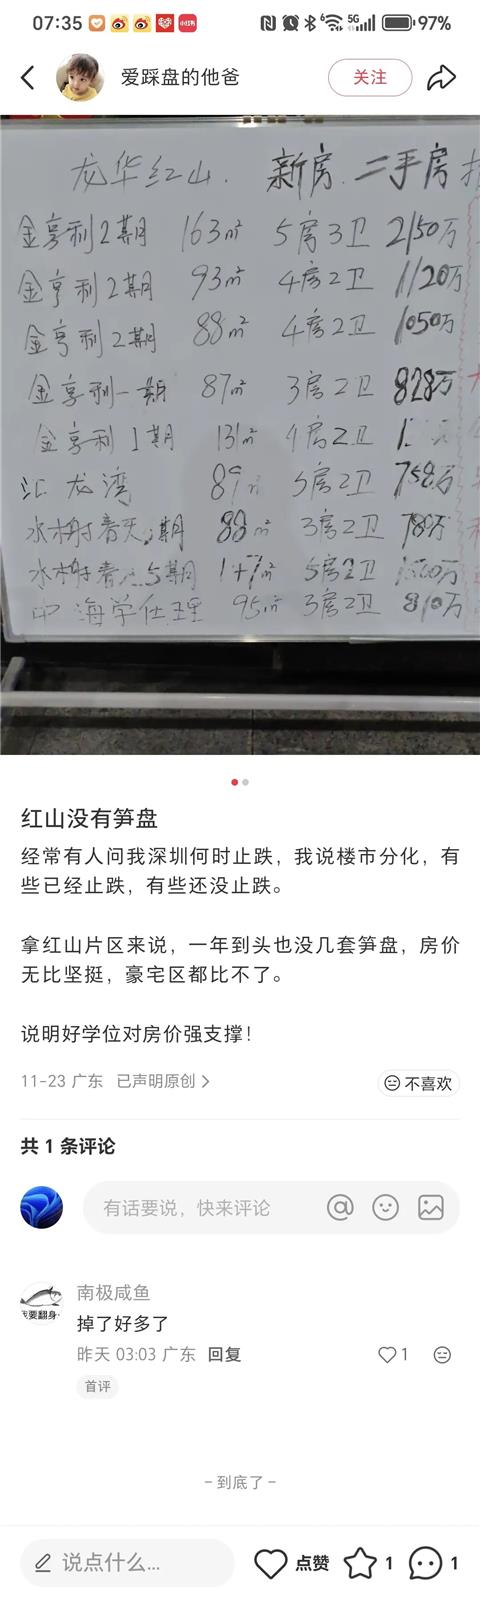 07:35
5G
97%
爱踩盘的他爸
关注
龙华红山. 新房.二手房
金亨利2期 163m² 5房3卫 2150万
金亨利2期 93m² 4房2卫 1120万
金亨利2期 88m² 4房2卫 1050万
金亨利一期 87m² 3房2卫 828万
金亨利1期 131m² 4房2卫
汇龙湾 89m² 3房2卫 758万
水榭春天2期 88m² 3房2卫 78万
水榭春 5期 1 7m² 5房2卫
中海学仕里 95m² 3房2卫 810万
红山没有笋盘
经常有人问我深圳何时止跌，我说楼市分化，有
些已经止跌，有些还没止跌。
拿红山片区来说，一年到头也没几套笋盘，房价
无比坚挺，豪宅区都比不了。
说明好学位对房价强支撑！
11-23 广东 已声明原创
不喜欢
共 1 条评论
有话要说，快来评论
南极咸鱼
掉了好多了
昨天 03:03 广东 回复
1
首评
- 到底了 -
说点什么...
点赞
1
1